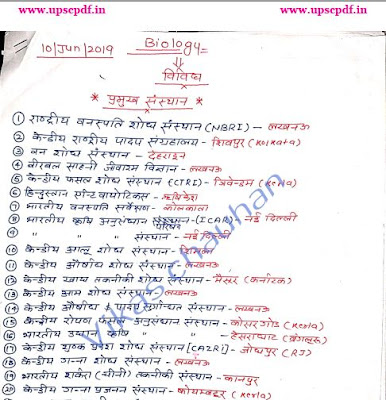 www.upscpdf.in www.upscpdf.in
10/Jun/2019 Biology
विविध
* प्रमुख संस्थान *
① राष्ट्रीय वनस्पति शोध संस्थान (NBRI) – लखनऊ
② केन्द्रीय राष्ट्रीय पादप संग्रहालय - शिवपुर (Kolkata)
③ वन शोध संस्थान - देहरादून
④ बीरबल साहनी जीवाश्म विज्ञान - लखनऊ
⑤ केन्द्रीय फसल शोध संस्थान (CTRI) - त्रिवेन्द्रम (Kerla)
⑥ हिन्दुस्तान एन्टीबायोटिक्स - ऋषिकेश
⑦ भारतीय वनस्पति सर्वेक्षण - कोलकाता
⑧ भारतीय कृषि अनुसंधान परिषद (ICAR) - नई दिल्ली
⑨ " " " संस्थान - नई दिल्ली
⑩ केन्द्रीय आलू शोध संस्थान - शिमला
⑪ केन्द्रीय औषधि शोध संस्थान - लखनऊ
⑫ केन्द्रीय खाद्य तकनीकी शोध संस्थान - मैसूर (कर्नाटक)
⑬ केन्द्रीय आम शोध संस्थान - लखनऊ
⑭ केन्द्रीय औषधीय संस्थान - लखनऊ
⑮ केन्द्रीय रोपण फसल अनुसंधान संस्थान - कासरगोड (Kerla)
⑯ भारतीय उद्यान कृषि " " - हेसरघाटा (बेंगलुरू)
⑰ केन्द्रीय शुष्क क्षेत्र शोध संस्थान [CAZRI] - जोधपुर (RJ)
⑱ केन्द्रीय गन्ना शोध संस्थान - लखनऊ
⑲ भारतीय शर्करा (चीनी) तकनीकी संस्थान - कानपुर
⑳ केन्द्रीय गन्ना प्रजनन संस्थान - कोयम्बटूर (Kerla)
Vikas Chauhan